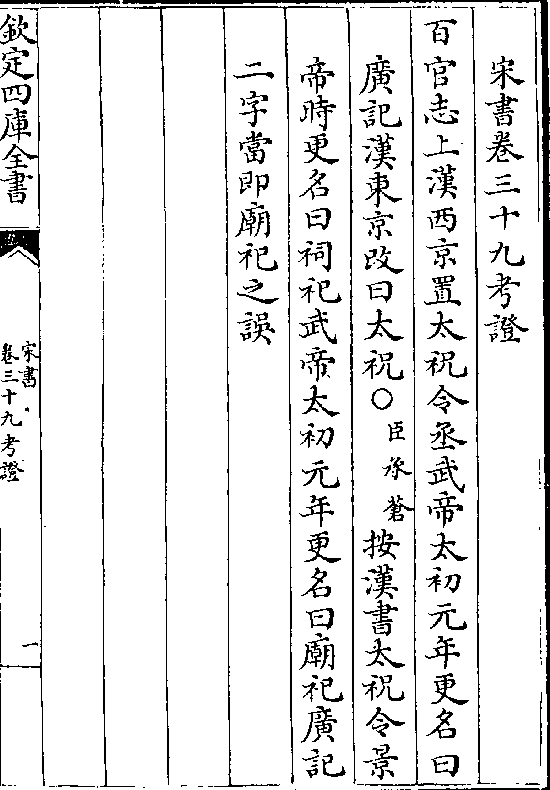 宋書卷三十九考證
百官志上漢西京置太祝令丞武帝太初元年更名曰
廣記漢東京改曰太祝○臣承蒼按漢書太祝令景
帝時更名曰祠祀武帝太初元年更名曰廟祀廣記
二字當即廟祀之誤
欽定四庫全書
宋書
卷三十九考證
一